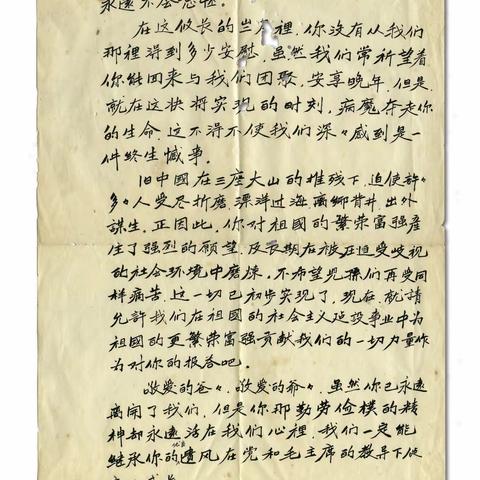 永遠不会忘怀。
在这悠长的岁月裡，你没有从我们
那裡得到多少安慰，虽然我们常祈望着
你能回来与我们团聚，安享晚年，但是，
就在这快将实现的时刻，病魔夺走你
的生命，这不得不使我们深〻感到是一
件终生憾事。
旧中國在三座大山的摧残下，迫使許
多〻人受尽折磨漂洋过海离鄉背井，出外
謀生，正因此，你对祖國的繁荣富强産
生了强烈的願望，及長期在被压迫受岐視
的社会环境中磨煉，不希望児孫们再受同
样痛苦，这一切已初步实现了，现在，就請
允許我们在祖國的社会主义建設事业中为
祖國的更繁荣富强贡献我们的一切力量作
为对你的报答吧。
敬爱的爸〻，敬爱的爺〻，虽然你已永遠
离開了我们，但是你那勤劳俭樸的精
神却永遠活在我们心裡，我们一定能
继承你的優良遺风在党和毛主席的教导下使